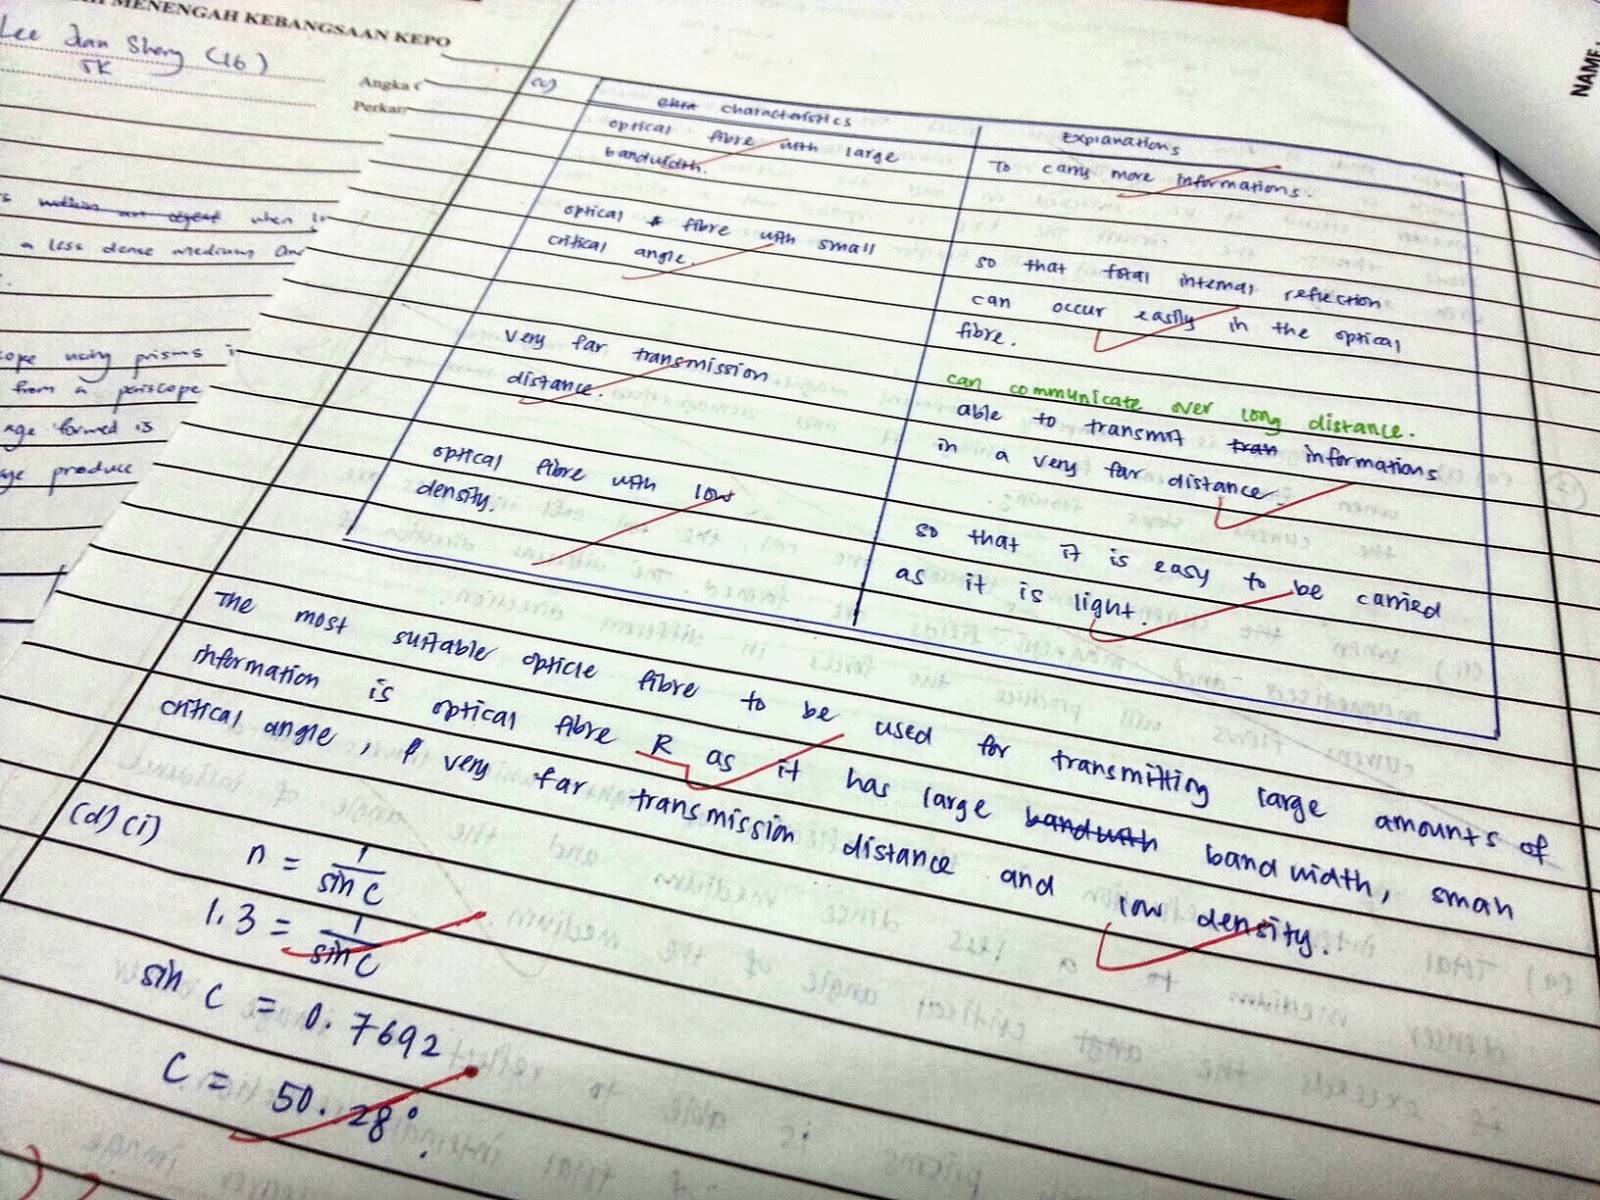 MENENGAH KEBANGSAAN KEPO
Lee Jian Sheng (16)
5K
Angka
Perkar
NAME
when
a less dense medium
using prisms
from a periscope
age formed is
produce
(c)
characteristics
Explanations
optical fibre with large
bandwidth.
To carry more informations.
optical fibre with small
critical angle.
so that total internal reflection
can occur easily in the optical
fibre.
very far transmission
distance.
can communicate over long distance.
able to transmit tran informations
in a very far distance.
optical fibre with low
density.
so that it is easy to be carried
as it is light.
The most suitable opticle fibre to be used for transmitting large amounts of
information is optical fibre R as it has large bandwith bandwidth, small
critical angle, very far transmission distance and low density.
(d)(i)
n = 1/sin C
1.3 = 1/sin C
sin C = 0.7692
C = 50.28°.